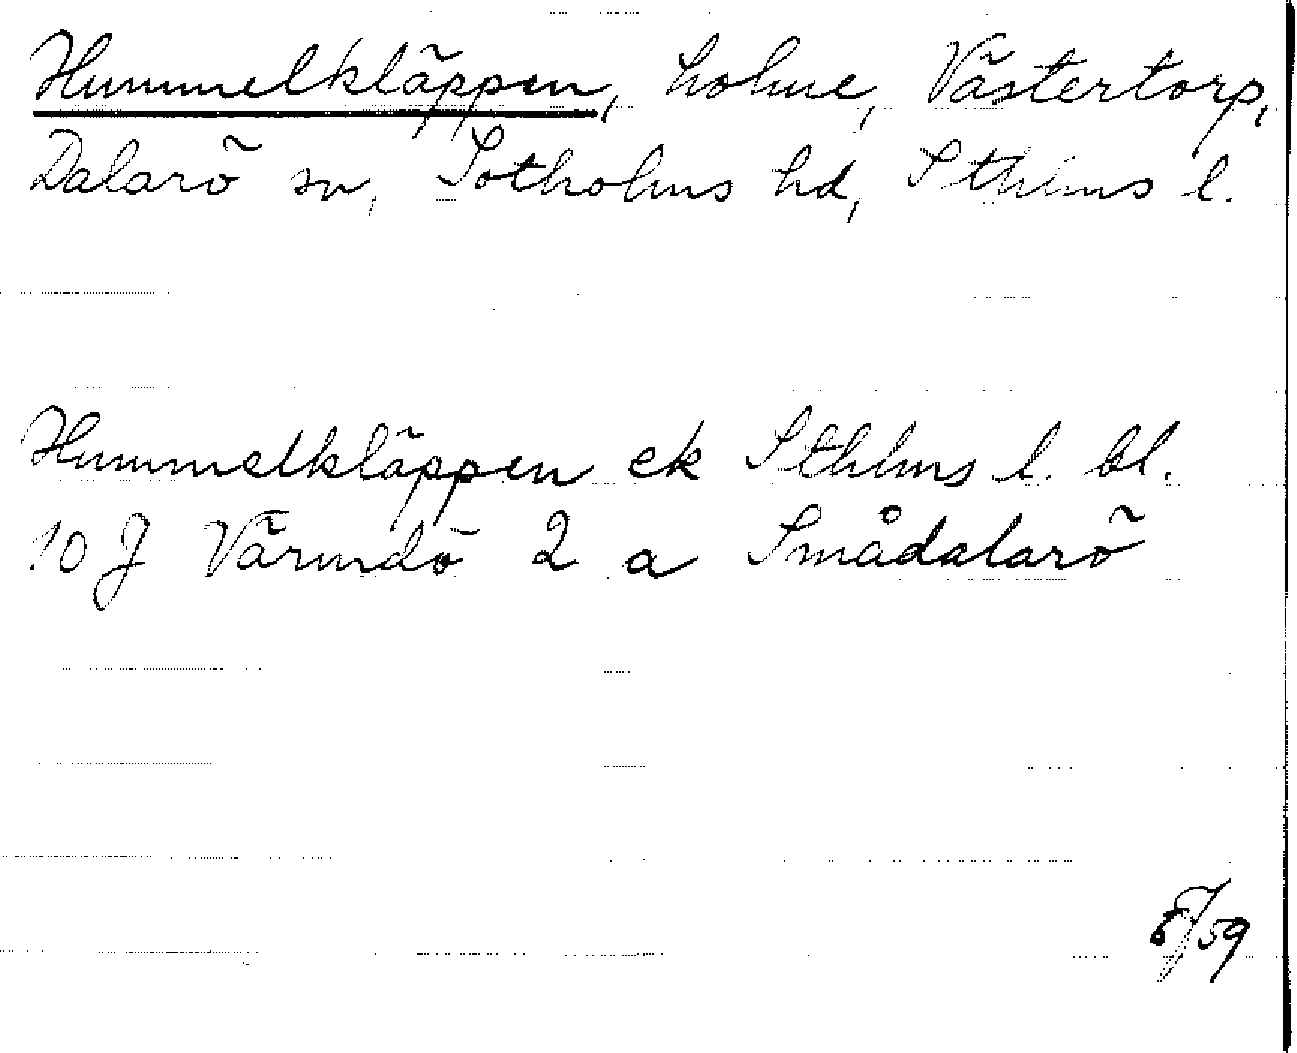 Hummelkläppen, holme, Västertorp,
Dalarö sn, Sotholms hd, Sthlms l.
Hummelkläppen ek Sthlms l. bl.
10 J Värmdö 2 a Smådalarö